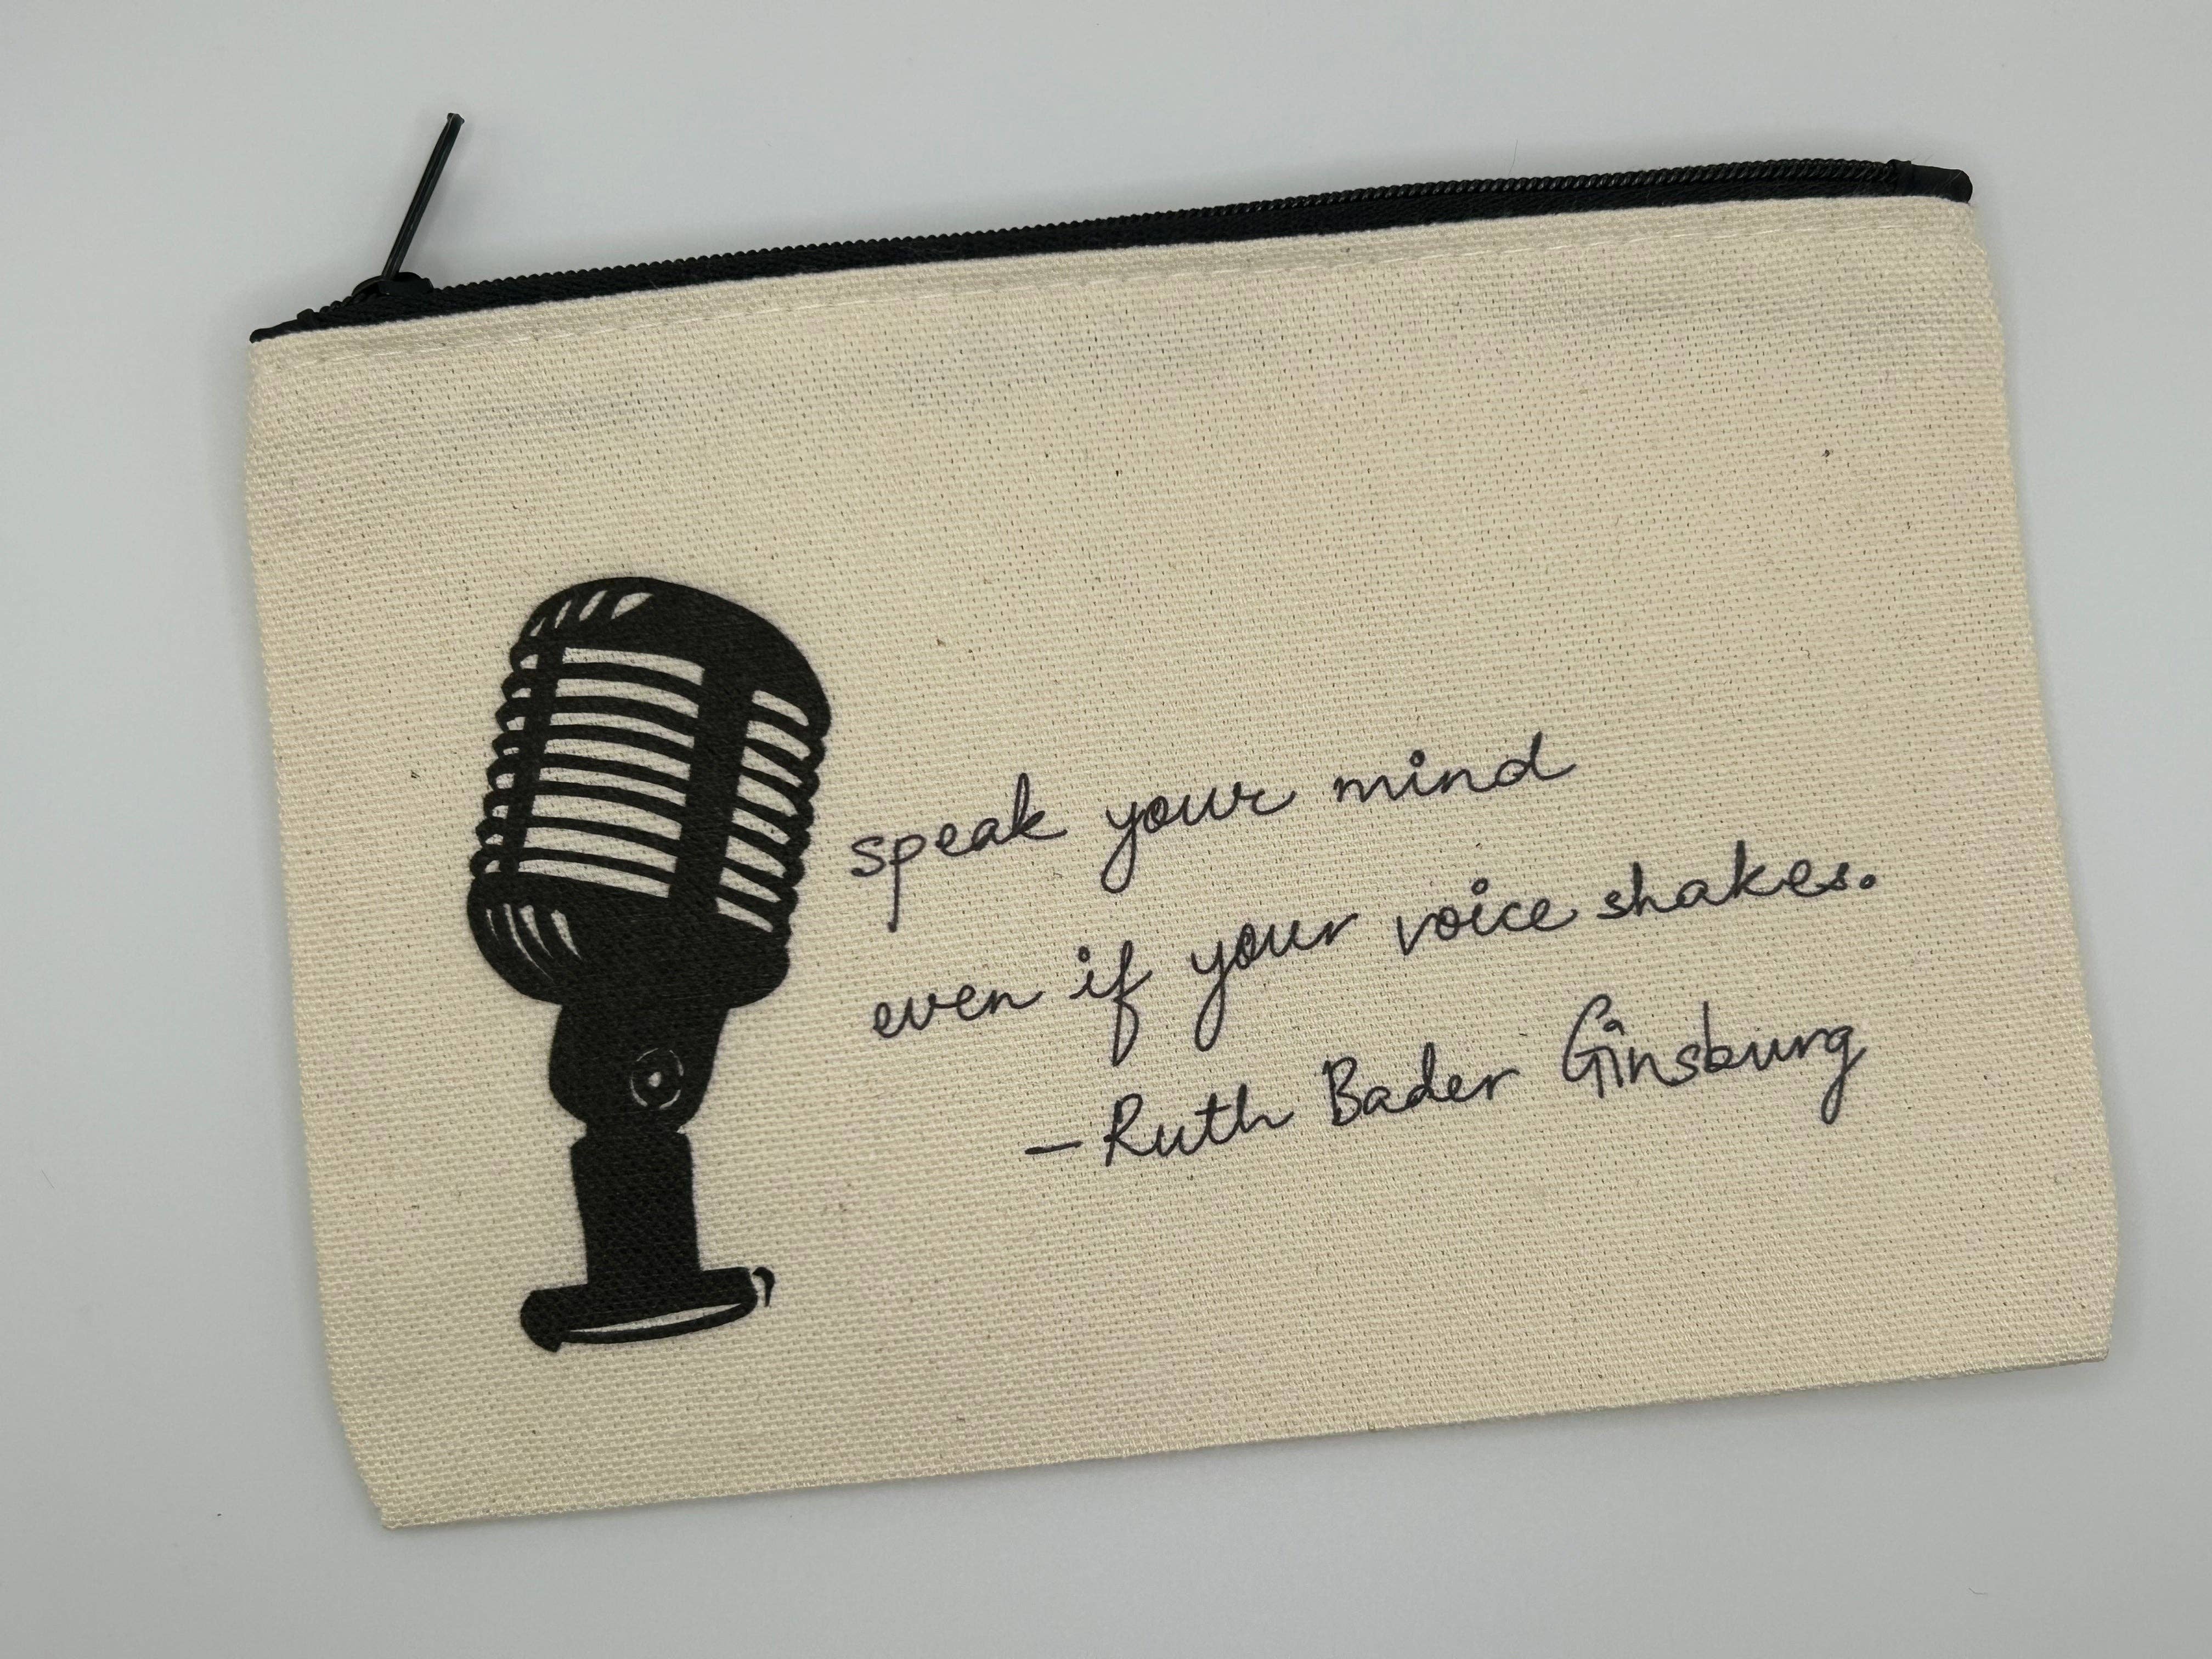 speak your mind
even if your voice shakes.
—Ruth Bader Ginsburg